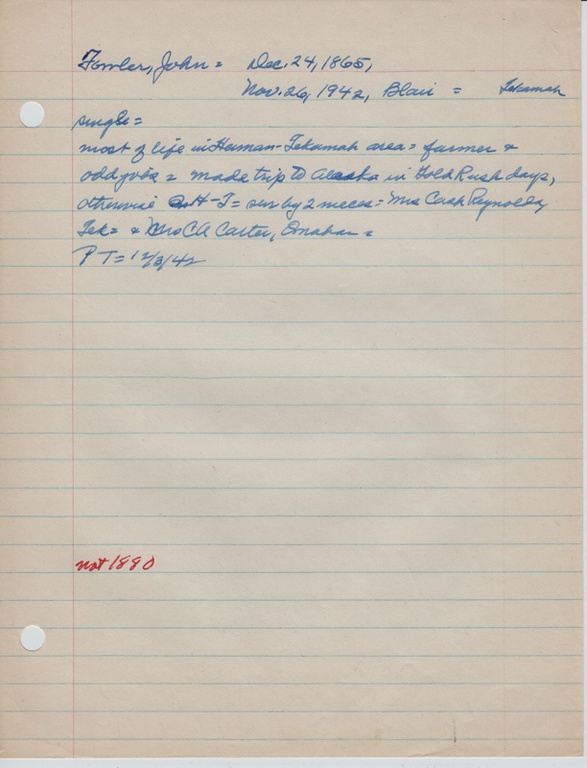 Fowler, John = Dec. 24, 1865,
Nov. 26, 1942, Blair = Tekamah
single =
most of life in Herman-Tekamah area = farmer &
odd jobs = made trip to Alaska in Gold Rush days,
otherwise H-T = sur by 2 nieces = Mrs Cash Reynolds,
Tek = & Mrs CA Carter, Omaha =
PT = 12/3/42
not 1880